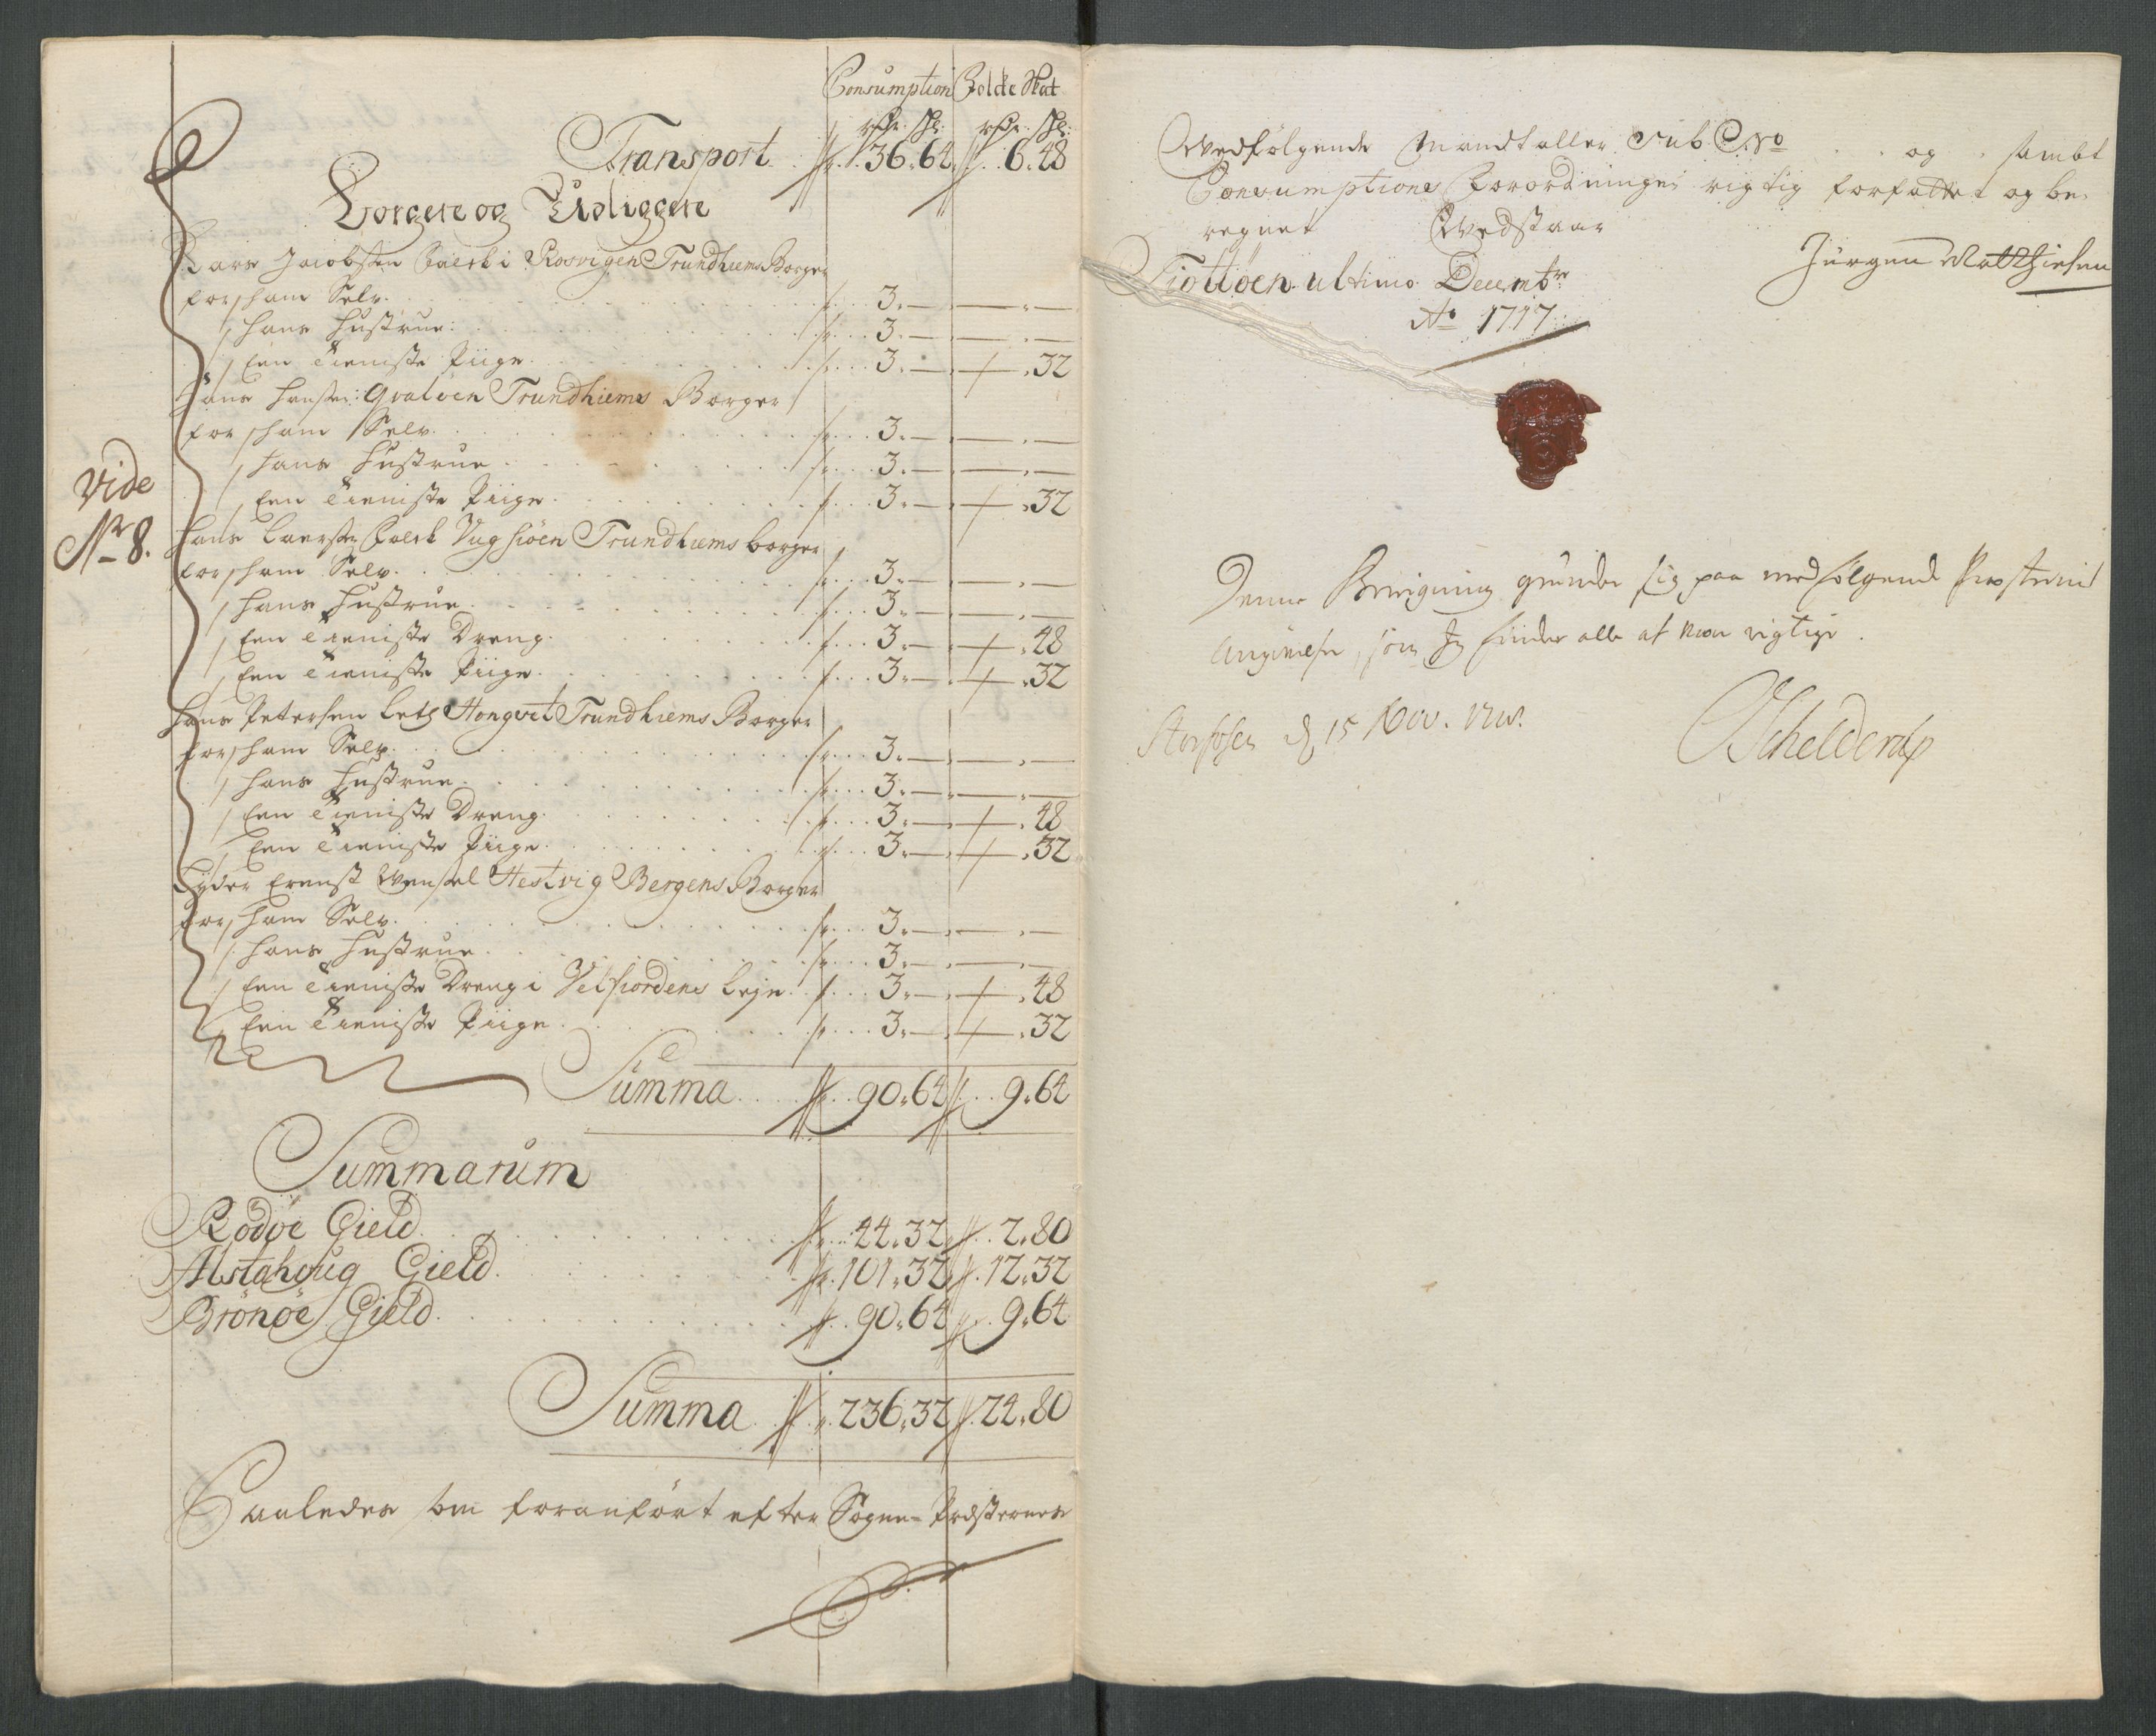 Consumption Folcke Skat
rdr. sh: rdr. sh:
Transport . . 36 . 64 . 6 . 48
Borgere og Udliggere
Lars Jacobsen Falck i Rosvigen Trundhiems Borger
for ham Selv . . 3 . — — . —
hans Hustrue . . 3 . — — . —
Een Tieniste Piige . . 3 . — — . 32
Jens Hansen Qvaløen Trundhiems Borger
for ham Selv . . 3 . — — . —
hans Hustrue . . 3 . — — . —
Een Tieniste Piige . . 3 . — — . 32
Vide
No 8.
Hans Laersen Falck Vug siøen Trundhiems borger
for ham Selv . . 3 . — — . —
hans Hustrue . . 3 . — — . —
Een Tieniste Dreng . . 3 . — — . 48
Een Tieniste Piige . . 3 . — — . 32
Hans Petersen Hongvet Trundhiems Borger
for ham Selv . . 3 . — — . —
hans Hustrue . . 3 . — — . —
Een Tieniste Dreng . . 3 . — — . 48
Een Tieniste Piige . . 3 . — — . 32
Lyder Ernst Wensel Hestvig Bergens Borger
for ham Selv . . 3 . — — . —
hans Hustrue . . 3 . — — . —
Een Tieniste Dreng i Velfiordens leje . . 3 . — — . 48
Een Tieniste Piige . . 3 . — — . 32
Summa . . 90 . 64 . . 9 . 64
Summarum
Rødøe Gield . . 44 . 32 . . 2 . 80
Alstahoug Gield . . 101 . 32 . 12 . 32
Brønøe Gield . . 90 . 64 . . 9 . 64
Summa . . 236 . 32 . 24 . 80
Saaledes som foranført efter Sogne-Præsternes
Medfølgende Mandtaller Sub C. No . . og . sambt
Consumptions Forordninger rigtig forfattet og be-
regnet Vedstaar
Jurgen Matthiesen
Tiøttøen ultimo Decembr
Ao 1717
Denne Beregning grunder sig paa medfølgende
som Jeg finder alle at være rigtige.
d 15 Nov. 1718.
Schelderup